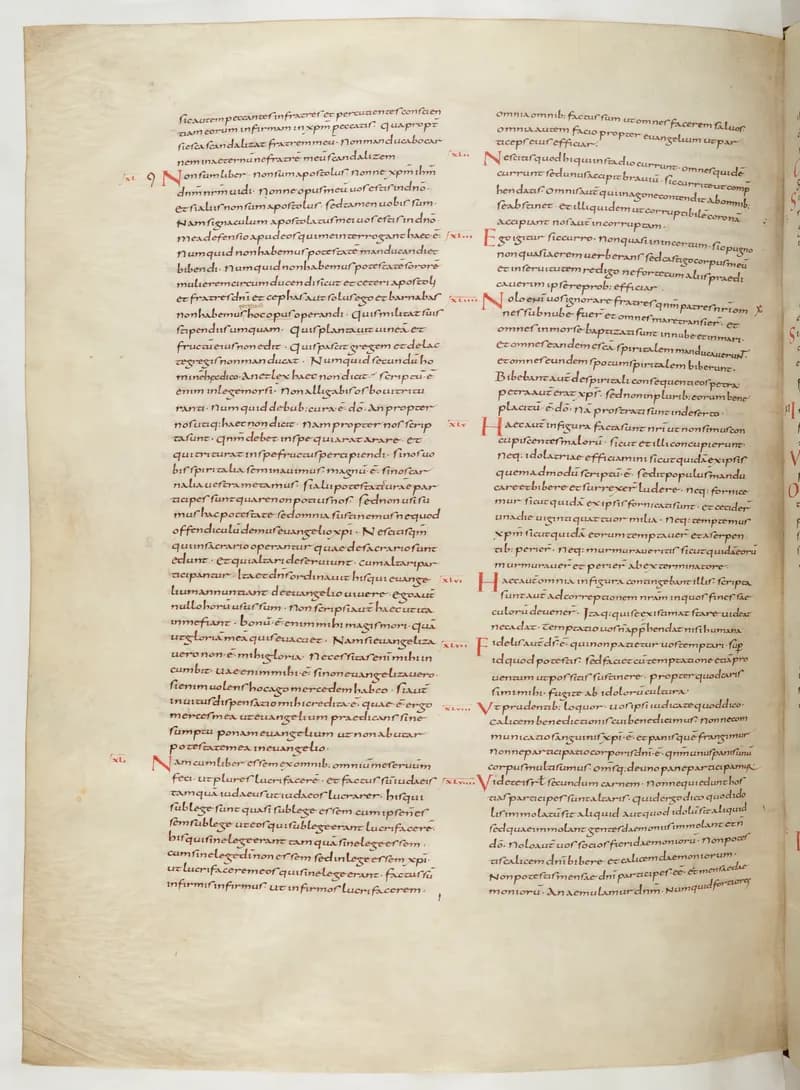 sic autem peccantes in fratres et percutientes conscien
tiam eorum infirmam in xpm peccatis · Quapropt
si esca scandalizat fratrem meu · Non manducabo car
nem in aeternu ne fratrē meū scandalizem
Non sum liber · non sum apostolus · nonne xpm ihm
dnm nrm uidi · Nonne opus meū uos estis in dnō ·
et si aliis non sum apostolus · sed tamen uobis sum ·
Nam signaculum apostolatus mei uos estis in dnō
mea defensio apud eos qui me interrogant haec ē ·
Numquid non habemus potestatē manducandi et
bibendi · numquid non habemus potestatē sororē
mulierem circumducendi sicut et ceteri apostoli
et fratres dni et cephas aut solus ego et barnabas
non habemus hoc opus operandi · Quis militat suis
stipendiis umquam · Quis plantat uineā et
fructū eius non edit · Quis pascit gregem et de lac
te gregis non manducat · Numquid secundū ho
minē haec dico · An et lex haec non dicit · scriptū ē
enim in lege mosi · Non alligabis os boui tritu
ranti · Numquid de bub: cura ē dō · An propter
nos utiq: haec non dicit · Nam propter nos scrip
ta sunt · qnm debet in spe qui arat arare · et
qui triturat in spe fructus percipiendi · si nos uo
bis spiritalia seminauimus · magnū ē · si nos car
nalia uestra metamus · si alii potestatis urae par
ticipes sunt quare non potius nos · sed non usi su
mus hac potestate sed omnia sustinemus ne quod
offendiculū demus euangelio xpi · Nescitis qm
qui in sacrario operantur quae de sacrario sunt
edunt · et qui altari deseruiunt · cum altari par
ticipantur · Ita et dns ordinauit his qui euange
lium annuntiant de euangelio uiuere · ego aut
nullo horū usus sum · Non scripsi aut haec ut ita
in me fiant · bonū ē enim mihi magis mori · quā
ut gloriā meā quis euacuet · Nam si euangeliza
uero non ē mihi gloria · Necessitas enī mihi in
cumbit · uae enim mihi ē si non euangelizauero ·
si enim uolens hoc ago mercedem habeo · si aut
inuitus dispensatio mihi credita ē · quae ē ergo
merces mea ut euangelium praedicans sine
sumptu ponam euangelium ut non abutar
potestate mea in euangelio ·
xl. Nam cum liber essem ex omnib: omniū me seruum
feci · ut plures lucrifacerē · et factus sū iudaeis
tamquā iudaeus ut iudaeos lucrarer · his qui
sub lege sunt quasi sub lege essem cum ipse nēs
sem sub lege ut eos qui sub lege erant lucrifacerē ·
his qui sine lege erant tamquā sine lege essem ·
cum sine lege di non essem sed in lege essem xpi ·
ut lucrifacerem eos qui sine lege erant · factus sū
infirmis infirmus · ut infirmos lucrifacerem ·
omnia omnib: factus sum ut omnes facerem saluos
omnia autem facio propter euangelium ut par
ticeps eius efficiar ·
Nescitis quod hi qui in stadio currunt · omnes quidē
currunt sed unus accipit brauiū · sic currite ut comp
hendatis · omnis aut qui in agone contendit ab omnib:
se abstinet · et illi quidem ut corruptibilē coronā
accipiant nos aut incorruptam ·
Ego igitur sic curro · Non quasi in incertum · sic pugno
non quasi aerem uerberans sed castigo corpus meū
et in seruitutem redigo ne forte cum aliis praedi
cauerim ipse reprob: efficiar ·
Nolo enī uos ignorare fratres qnm patres nri om
nes sub nube fuer et omnes mare transier · et
omnes in morse baptizati sunt in nube et in mari ·
et omnes eandem escā spiritalem manducauerunt
et omnes eundem spocum spiritalem biberunt ·
Bibebant aut de spiritali consequenti eos petra
petra aut erat xps · sed non in plurib: eorum bene
placitū ē dō · Nā prostrati sunt in deserto ·
Haec aut in figura facta sunt nri ut non simus con
cupiscentes malorū · sicut et illi concupierunt ·
Neq: idolatriae efficiamini sicut quidā ex ipsis
quemadmodū scriptū ē · sedit populus mandu
care et bibere et surrexer ludere · neq: fornice
mur sicut quidā ex ipsis fornicati sunt · et cecider
una die uiginti quattuor milia · Neq: temptemus
xpm sicut quidā eorum temptauer et a serpen
tib: perier · Neq: murmuraueritis sicut quidā eorū
murmurauer et perier ab exterminatore ·
Haec aut omnia in figura contingebant illis · scripta
sunt aut ad correptionem nram in quos fines sae
culorū deuener · Itaq: qui se existimat stare uideat
ne cadat · temptatio uos n apphendat nisi humana
Fidelis aut ds ē · qui non patietur uos temptari sup
id quod potestis · sed faciet cū temptatione etiā pro
uentum ut possitis sustinere · propter quod caris
simi mihi · fugite ab idolorū cultura ·
Ut prudentib: loquor · uos ipsi iudicate quod dico ·
calicem benedictionis cui benedicimus · Nonne com
municatio sanguinis xpi ē · et panis quē frangimus
nonne participatio corporis dni ē · qnm unus panis unū
corpus multi sumus · omnsq: de uno pane participamur
xlviiii. Videte isrl secundum carnem · Nonne qui edunt hos
tias participes sunt altaris · quid ergo dico quod ido
lis immolatū sit aliquid aut quod idolū sit aliquid
sed quae immolant gentes daemoniis immolant et n
dō · Nolo aut uos socios fieri daemoniorū · Non potes
tis calicem dni bibere · et calicem daemoniorum ·
Non potestis mensae dni participes eē · et mensae dae
moniorū · An aemulamur dnm · Numquid fortiores